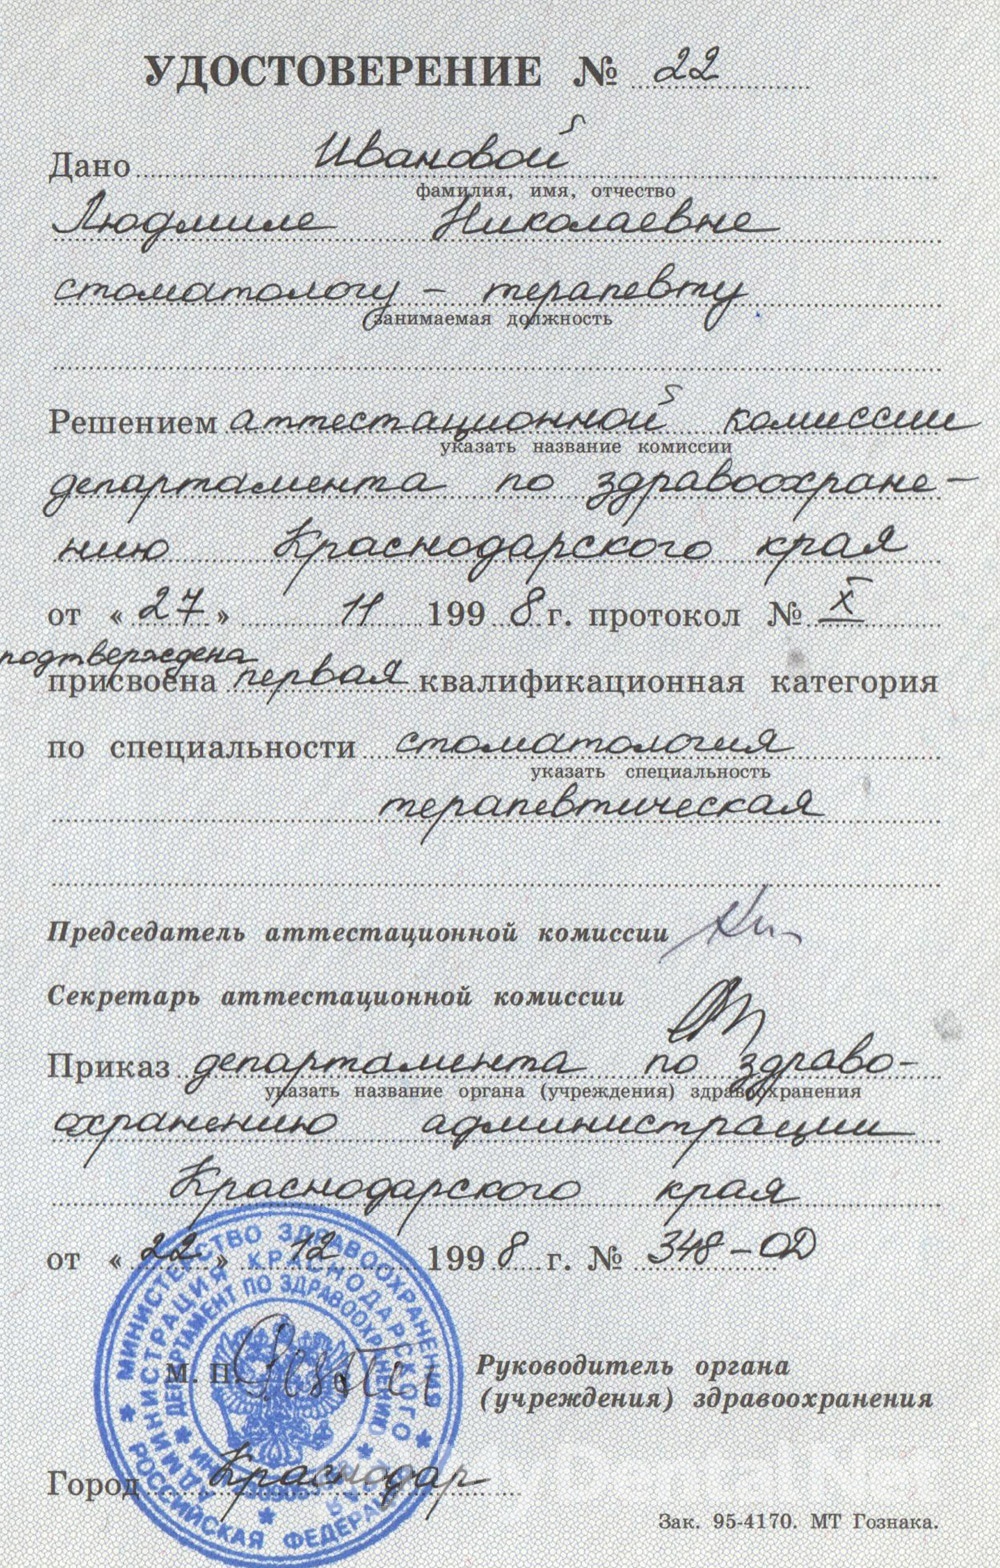 УДОСТОВЕРЕНИЕ № 22
Дано Ивановой
фамилия, имя, отчество
Людмиле Николаевне
стоматологу - терапевту
занимаемая должность
Решением аттестационной комиссии
указать название комиссии
департамента по здравоохране-
нию Краснодарского края
от « 27 » 11 1998 г. протокол № X
подтверждена
присвоена первая квалификационная категория
по специальности стоматология
указать специальность
терапевтическая
Председатель аттестационной комиссии
Секретарь аттестационной комиссии
Приказ департамента по здраво-
указать название органа (учреждения) здравоохранения
охранению администрации
Краснодарского края
от « 22 » 12 1998 г. № 348-ОД
МИНИСТЕРСТВО ЗДРАВООХРАНЕНИЯ
РОССИЙСКАЯ ФЕДЕРАЦИЯ
АДМИНИСТРАЦИЯ КРАСНОДАРСКОГО КРАЯ
ДЕПАРТАМЕНТ ПО ЗДРАВООХРАНЕНИЮ
М. П.
Руководитель органа
(учреждения) здравоохранения
Город Краснодар
Зак. 95-4170. МТ Гознака.